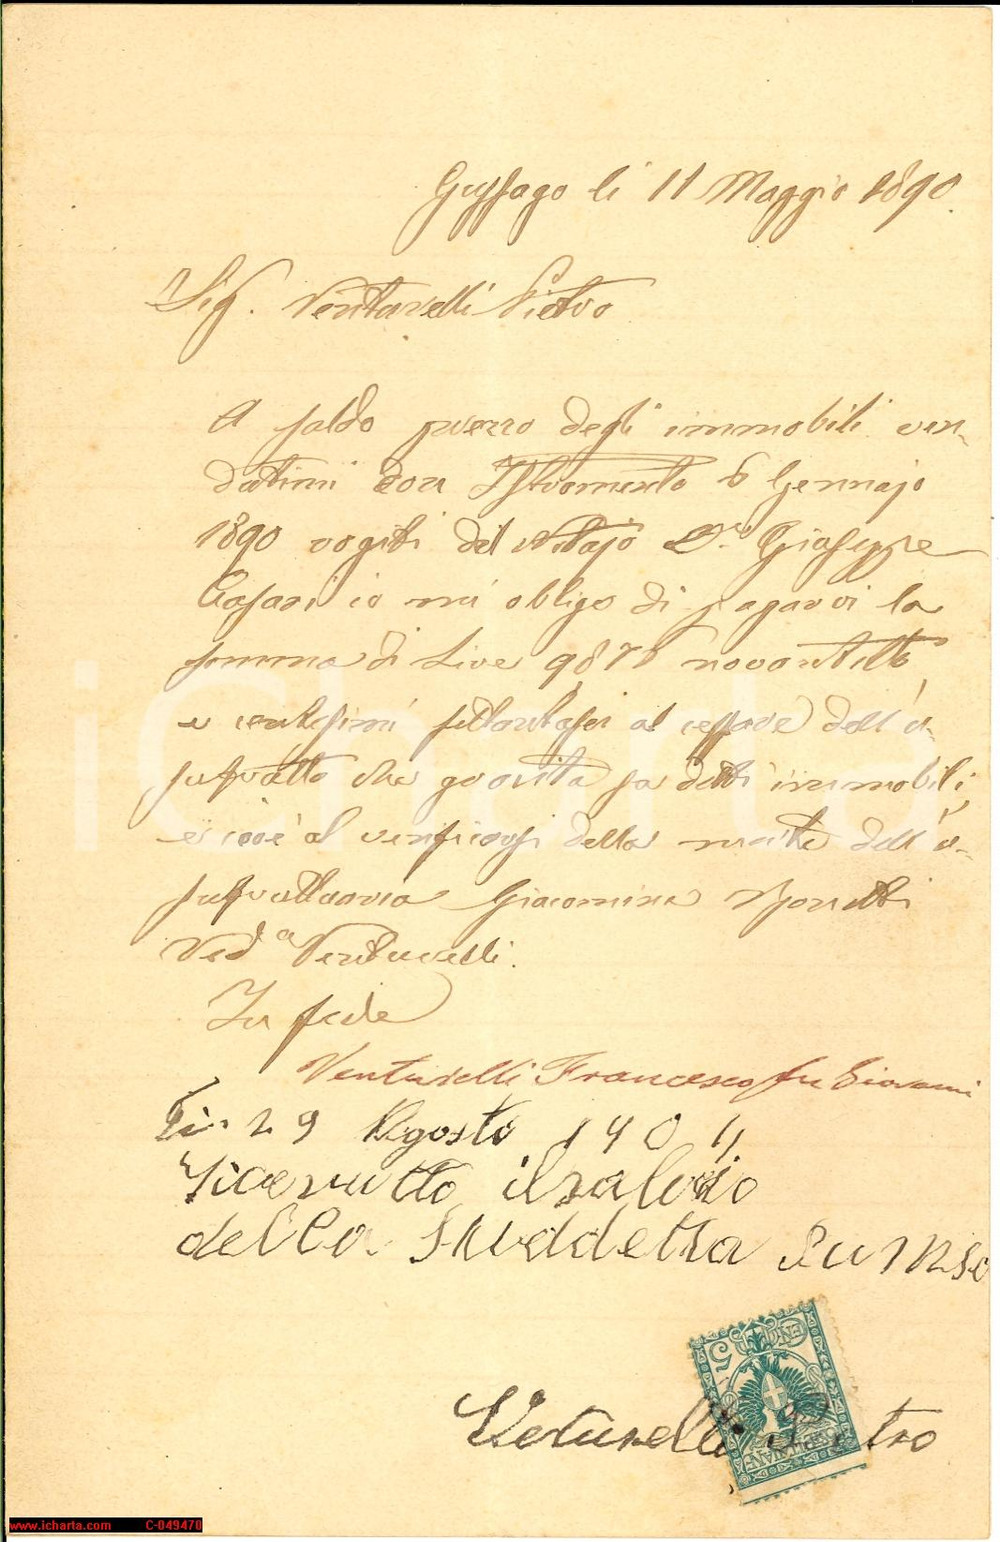 Gussago li 11 Maggio 1890.
Sig. Venturelli Pietro
A saldo prezzo degli immobili ven-
dutimi con Istromento 6 Gennajo
1890 rogiti del Notajo Dr. Giuseppe
Casari io mi obligo di pagarvi la
somma di Lire 98 76 novantotto
e centesimi settantasei al cessare dell'u-
sufrutto che gravita su detti immobili
e cioè al verificarsi della morte dell'u-
sufruttuaria Giacomina
Ved.a Venturelli.
In fede
Venturelli Francesco fu Giovanni
Li 29 Agosto 1901
Ricevutto il saldo
della suddetta
Venturelli Pietro
CEN 5
iCharta
www.icharta.com C-049470